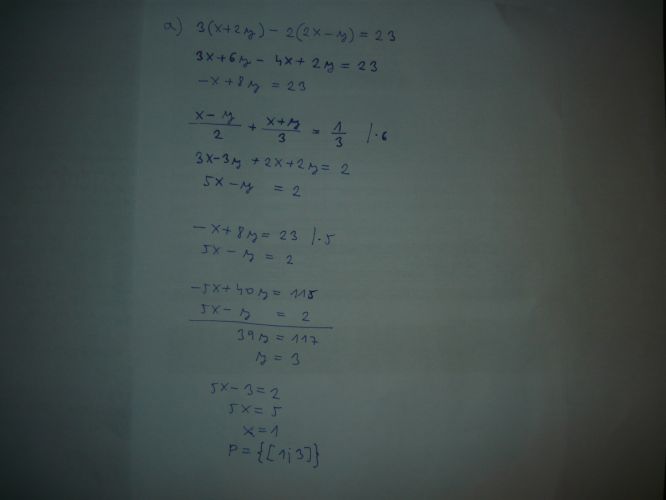 a) 3(x+2y) - 2(2x-y) = 23
3x+6y - 4x + 2y = 23
-x + 8y = 23
x-y/2 + x+y/3 = 1/3 /·6
3x-3y + 2x+2y = 2
5x - y = 2
-x + 8y = 23 /·5
5x - y = 2
-5x + 40y = 115
5x - y = 2
39y = 117
y = 3
5x - 3 = 2
5x = 5
x = 1
P = {[1;3]}